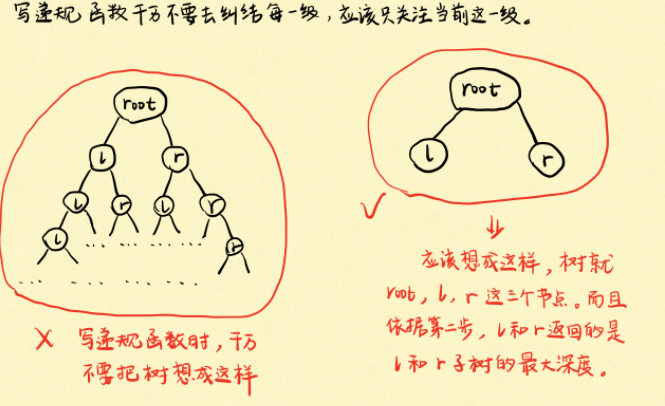 写递归函数千万不要去纠结每一级，应该只关注当前这一级。
root
l
r
l
r
l
r
l
r
...... ......
...... ......
X 写递归函数时，千万
不要把树想成这样
root
l
r
应该想成这样，树就
root，l，r 这三个节点。而且
依据第二步，l和r返回的是
l和r子树的最大深度。